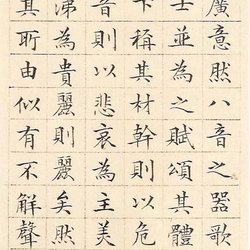 廣意然八音之器歌
士並為之賦頌其體
稱其材幹則以危
音則以悲哀為主美
涕為貴麗則麗矣然
其所由似有不解聲